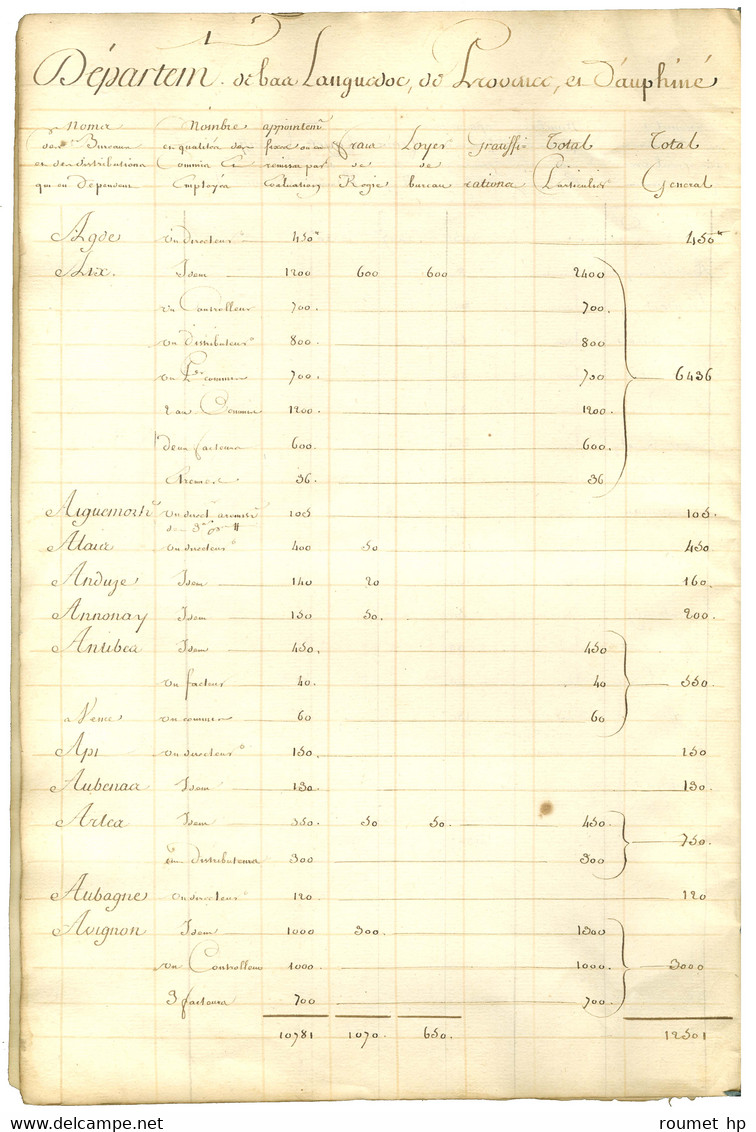 1
Départem. de bas Languedoc, de Provence, et Dauphiné
Noms des Bureaux et des distributions qui en Dependent | Nombre et qualités des Commis et Employés | appointem.ts fixes ou en remises par Evaluation | frais de Regie | Loyer de bureau | Gratiffications | Total Particulier | Total General
Agde un directeur 450 450
Aix. Idem 1200 600 600 2400
un Controlleur 700. 700.
un distributeur 800 800
un P.er commis 700. 700 6436
2 au Commis 1200. 1200.
deux facteurs 600. 600.
36. 36
Aiguemorte un direct. 105 105.
Alais un directeur 400 50 450
Anduze Idem 140 20 160.
Annonay Idem 150 50. 200.
Antibes Idem 450. 450
un facteur 40. 40 550.
a Vence un commis 60 60
Apt un directeur 150. 150
Aubenas Idem 130. 130
Arles Idem 350. 50 50. 450
distributeurs 300 300 750.
Aubagne un directeur 120 120
Avignon Idem 1000 300. 1300
un Controlleur 1000. 1000. 3000
3 facteurs 700 700
10781 1070. 650. 12501
roumet hp